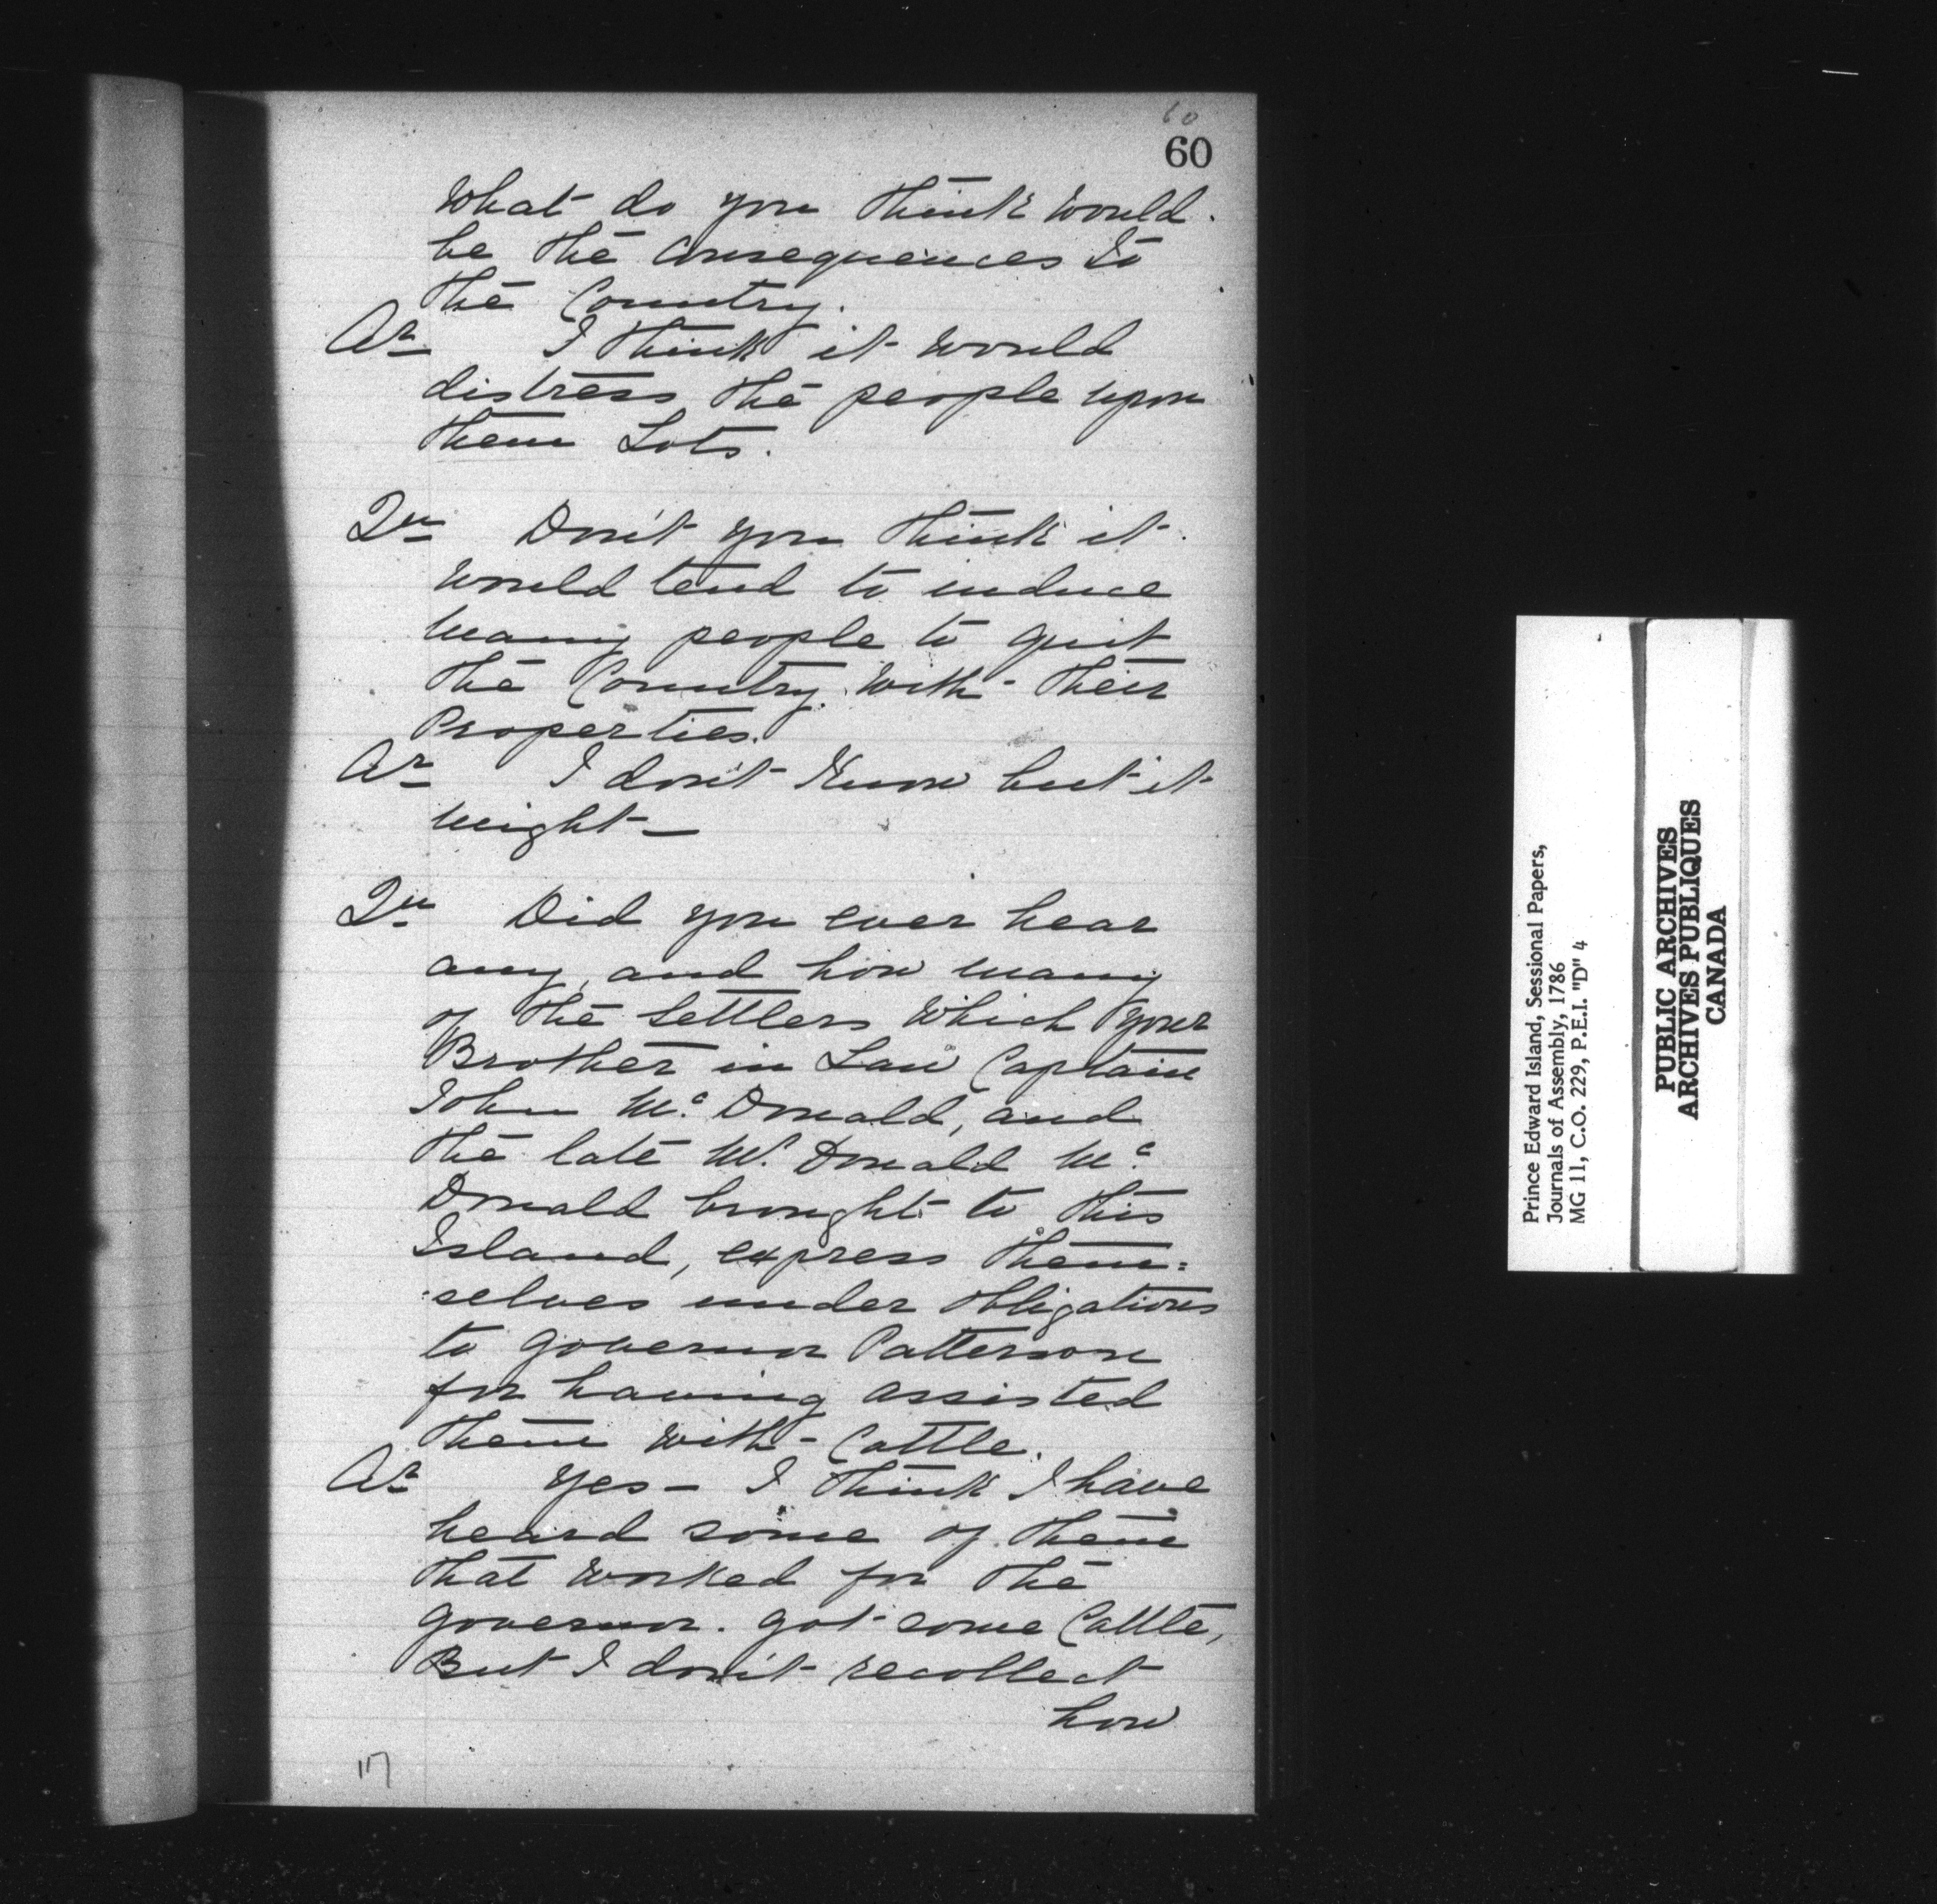 60
60
What do you think would
be the Consequences to
the Country.
Ar I think it would
distress the people upon
them Lots.
Qu Don't you think it
would tend to induce
many people to quit
the Country with their
Properties.
Ar I don't know but it
might —
Qu Did you ever hear
any, and how many
of the Settlers which your
Brother in Law Captain
John Mc Donald, and
the late Mr Donald Mc
Donald brought to this
Island, express them=
selves under obligations
to governor Patterson
for having assisted
them with Cattle.
Ar Yes — I think I have
heard some of them
that worked for the
governor. got some Cattle,
But I don't recollect
how
117
Prince Edward Island, Sessional Papers,
Journals of Assembly, 1786
MG 11, C.O. 229, P.E.I. "D" 4
PUBLIC ARCHIVES
ARCHIVES PUBLIQUES
CANADA